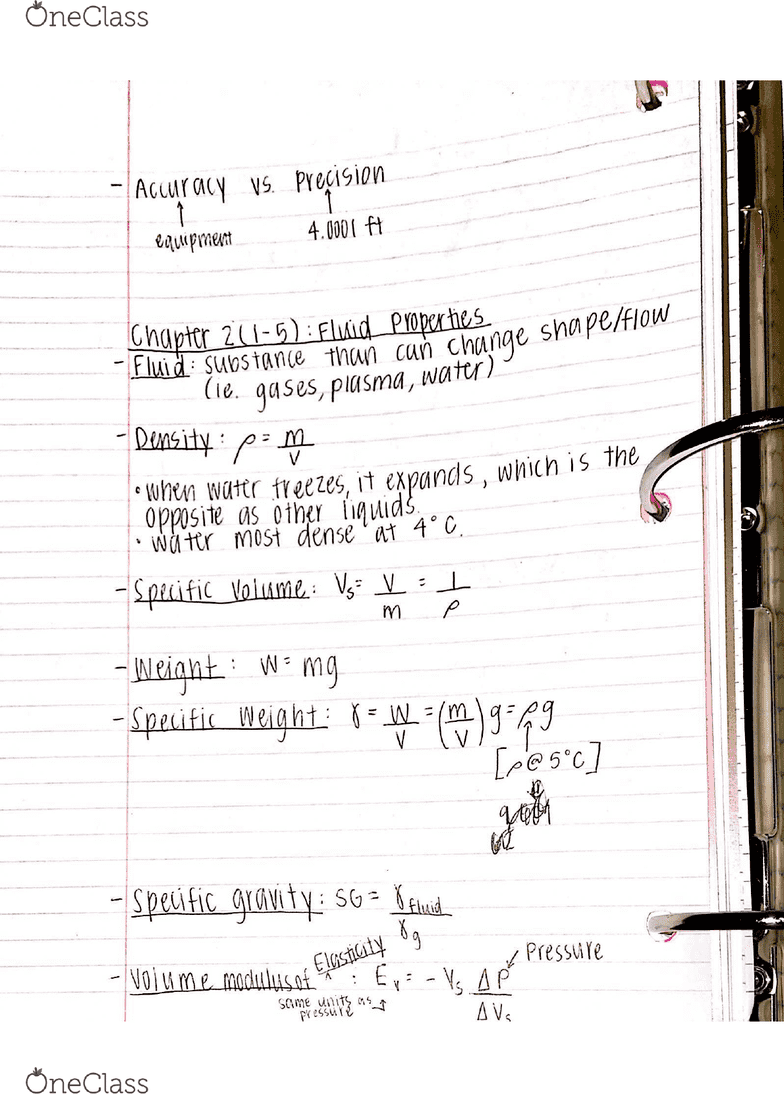 OneClass
- Accuracy vs. Precision
↑ ↑
equipment 4.0001 ft
Chapter 2 (1-5): Fluid Properties
- Fluid: substance than can change shape/flow
(ie. gases, plasma, water)
- Density: ρ = m/V
• when water freezes, it expands, which is the
opposite as other liquids.
• water most dense at 4°C.
- Specific Volume: Vs = V/m = 1/ρ
- Weight: W = mg
- Specific Weight: γ = W/V = (m/V) g = ρg
↑
[ρ @ 5°C]
- Specific gravity: SG = γfluid/γg
- Volume modulus of ^Elasticity : Ev = - Vs ΔP/ΔVs ↙ Pressure
same units as
pressure
OneClass